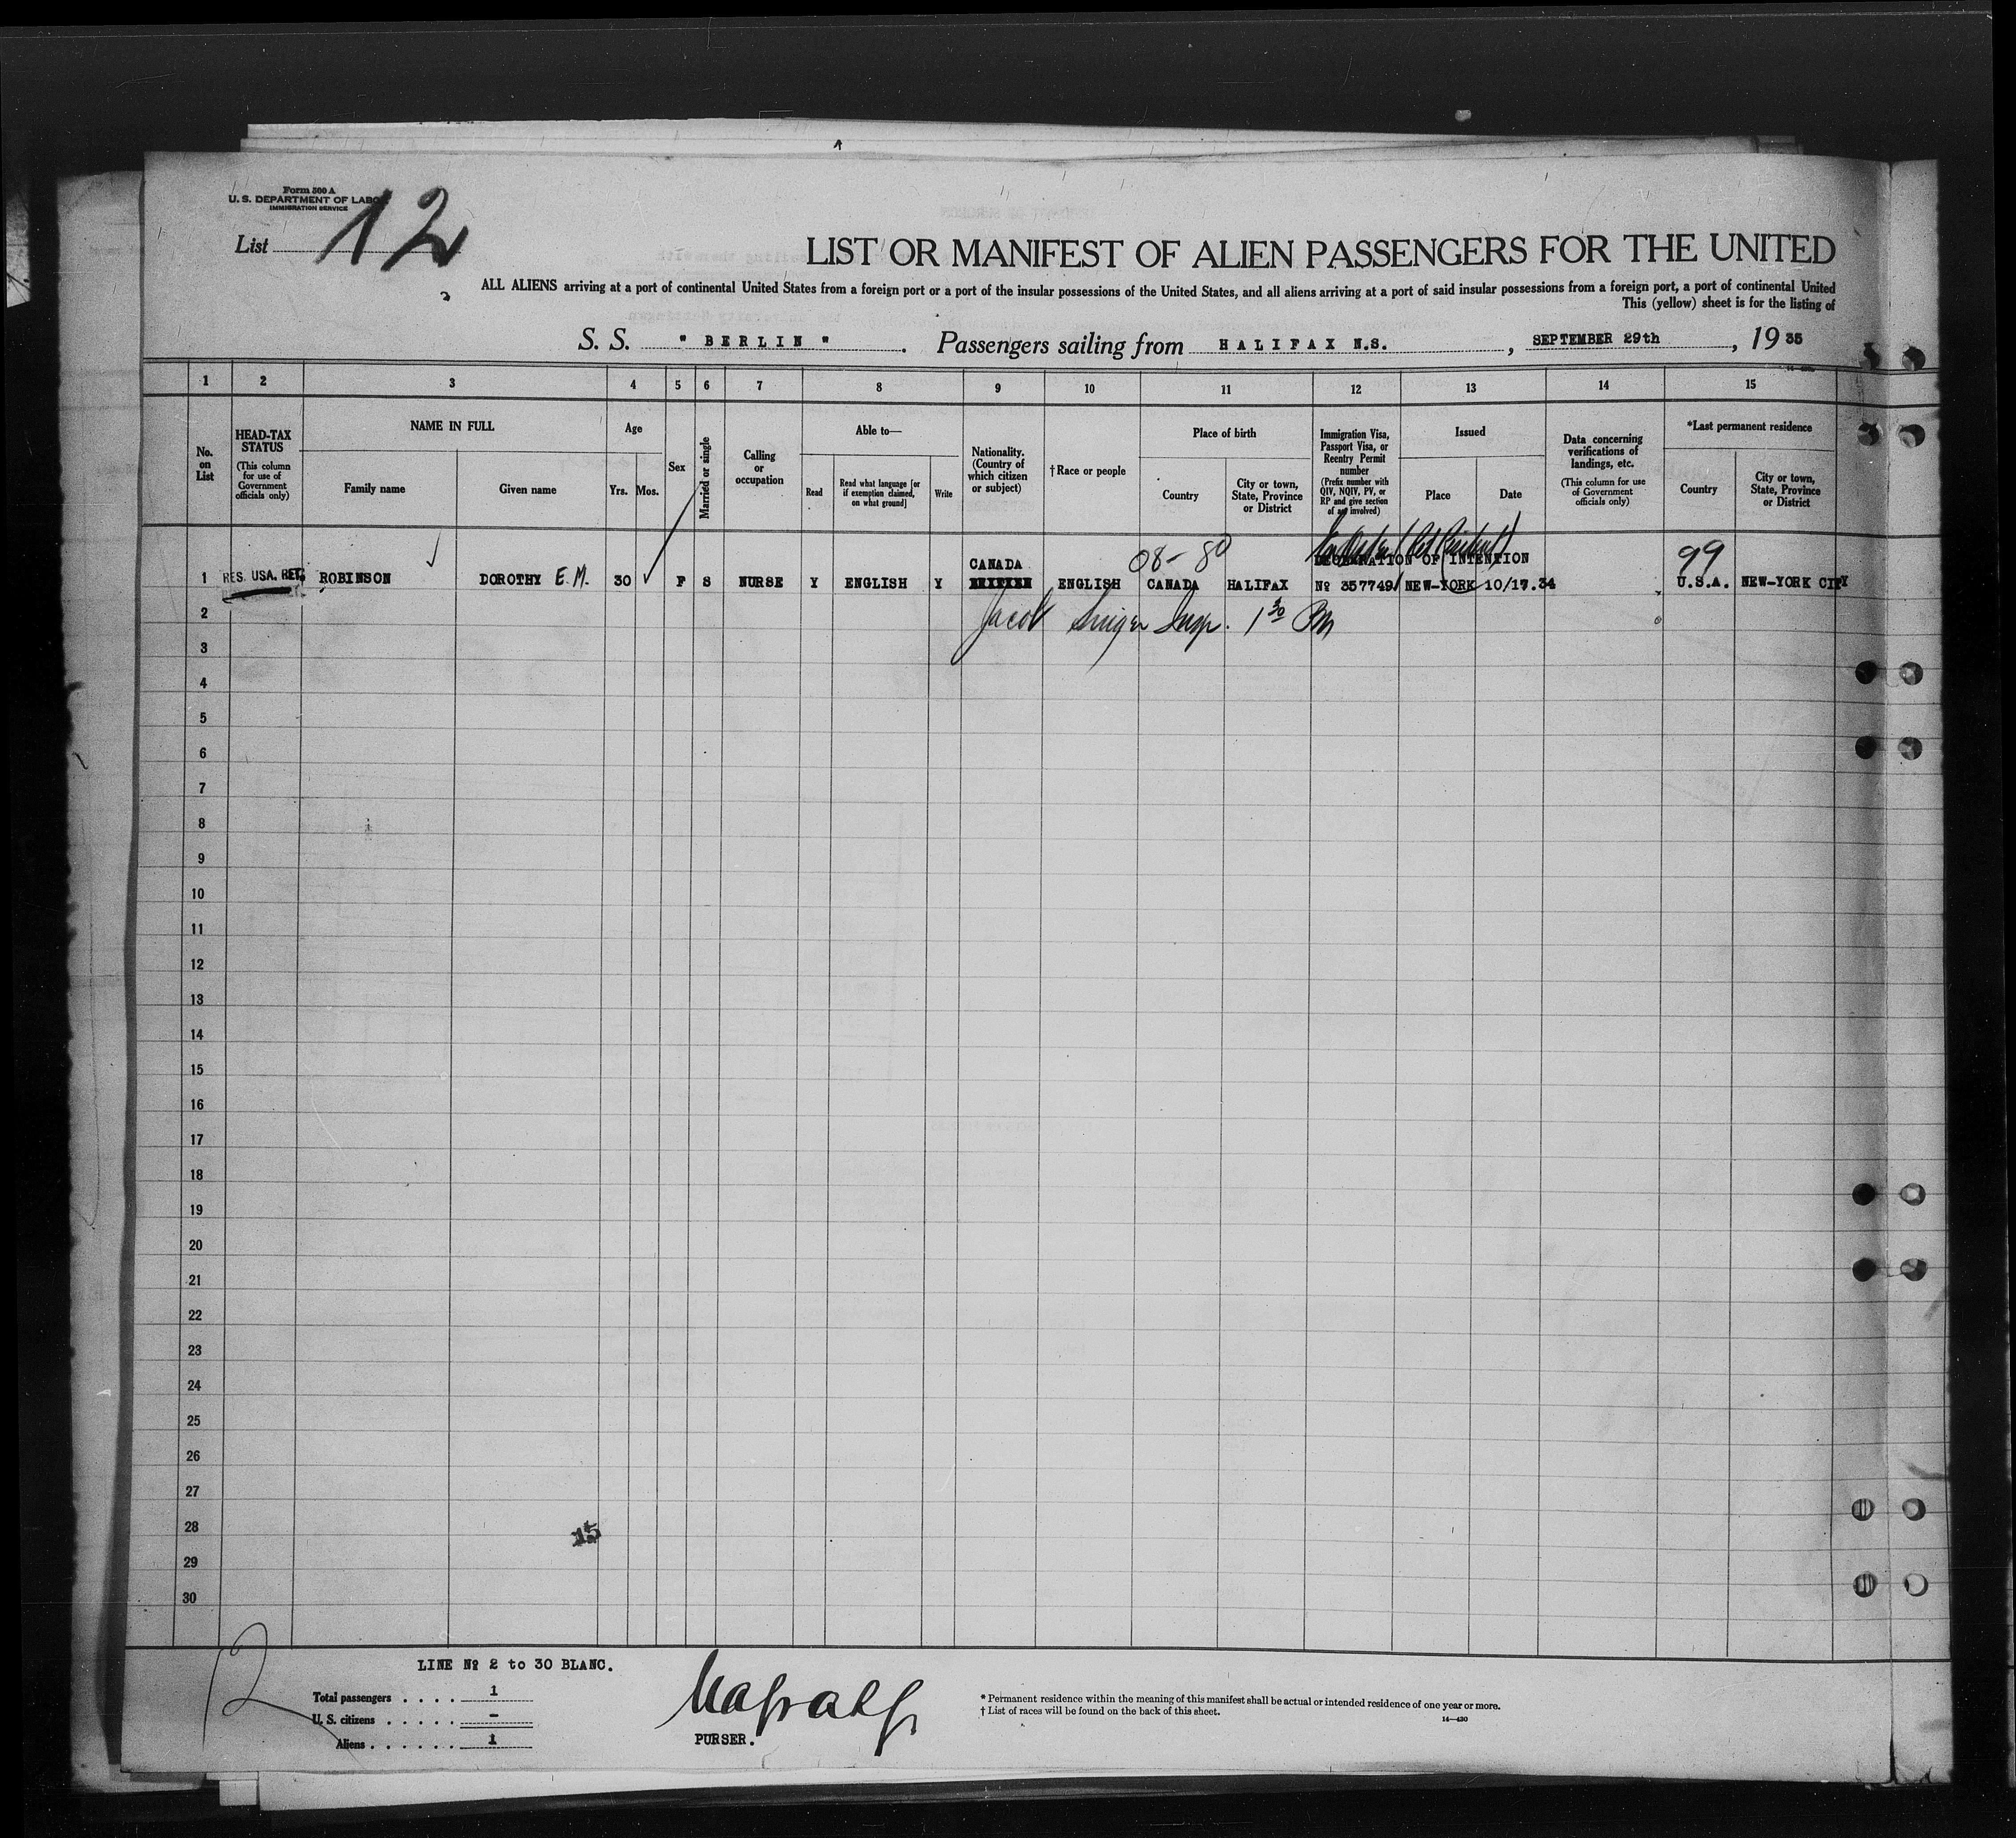 Form 500 A
U. S. DEPARTMENT OF LABOR
IMMIGRATION SERVICE
List 12
LIST OR MANIFEST OF ALIEN PASSENGERS FOR THE UNITED
ALL ALIENS arriving at a port of continental United States from a foreign port or a port of the insular possessions of the United States, and all aliens arriving at a port of said insular possessions from a foreign port, a port of continental United
This (yellow) sheet is for the listing of
S. S. " BERLIN " . Passengers sailing from HALIFAX N.S. , SEPTEMBER 29th , 19 35
1 2 3 4 5 6 7 8 9 10 11 12 13 14 15
No. on List
HEAD-TAX STATUS
(This column for use of Government officials only)
NAME IN FULL
Family name
Given name
Age
Yrs. Mos.
Sex
Married or single
Calling or occupation
Able to—
Read
Read what language [or if exemption claimed, on what ground]
Write
Nationality. (Country of which citizen or subject)
†Race or people
Place of birth
Country
City or town, State, Province or District
Immigration Visa, Passport Visa, or Reentry Permit number
(Prefix number with QIV, NQIV, PV, or RP and give section of act involved)
Issued
Place
Date
Data concerning verifications of landings, etc.
(This column for use of Government officials only)
*Last permanent residence
Country
City or town, State, Province or District
CANADA 08- 80 DECLARATION OF INTENTION 99
1 RES. USA. RET. ROBINSON DOROTHY E.M. 30 F S NURSE Y ENGLISH Y ENGLISH CANADA HALIFAX № 357749 NEW-YORK 10/17.34 U.S.A. NEW-YORK CITY
2 Jacob Singer Insp. 1 30 PM
3
4
5
6
7
8
9
10
11
12
13
14
15
16
17
18
19
20
21
22
23
24
25
26
27
28 15
29
30
12
LINE № 2 to 30 BLANC.
Total passengers . . . . 1
U. S. citizens . . . . . -
Aliens . . . . . . 1
PURSER.
* Permanent residence within the meaning of this manifest shall be actual or intended residence of one year or more.
† List of races will be found on the back of this sheet.
14—430